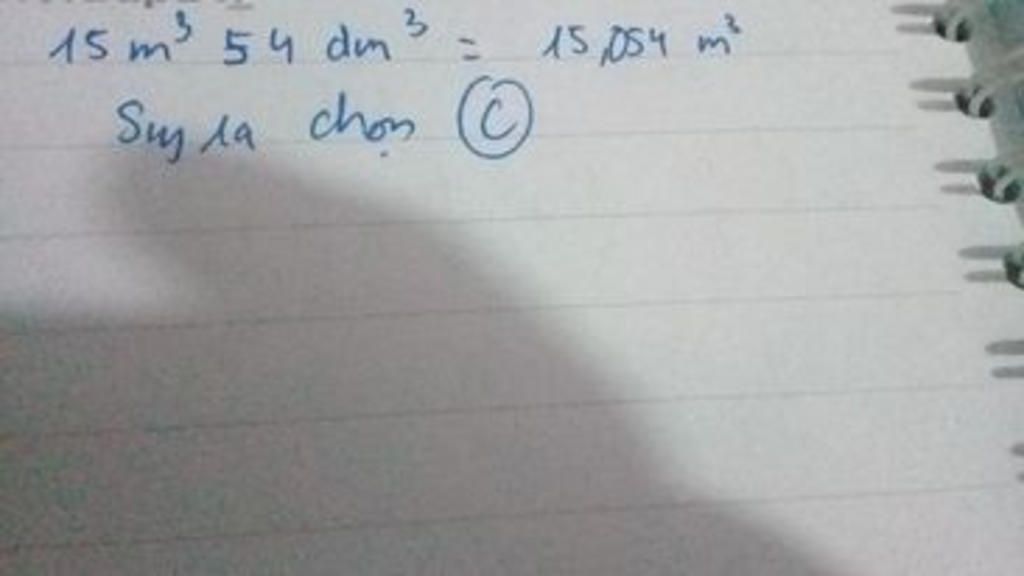 15 m³ 54 dm³ = 15,054 m³
Suy ra chọn C